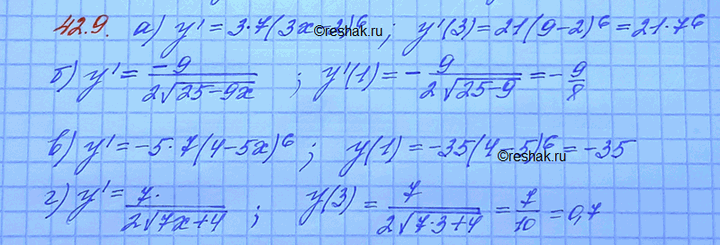 42.9. а) y' = 3·7(3x-2)⁶ ; y'(3) = 21(9-2)⁶ = 21·7⁶
©reshak.ru
б) y' = -9/(2√(25-9x)) ; y'(1) = -9/(2√(25-9)) = -9/8
в) y' = -5·7(4-5x)⁶ ; y(1) = -35(4-5)⁶ = -35
©reshak.ru
г) y' = 7·/(2√(7x+4)) ; y(3) = 7/(2√(7·3+4)) = 7/10 = 0,7